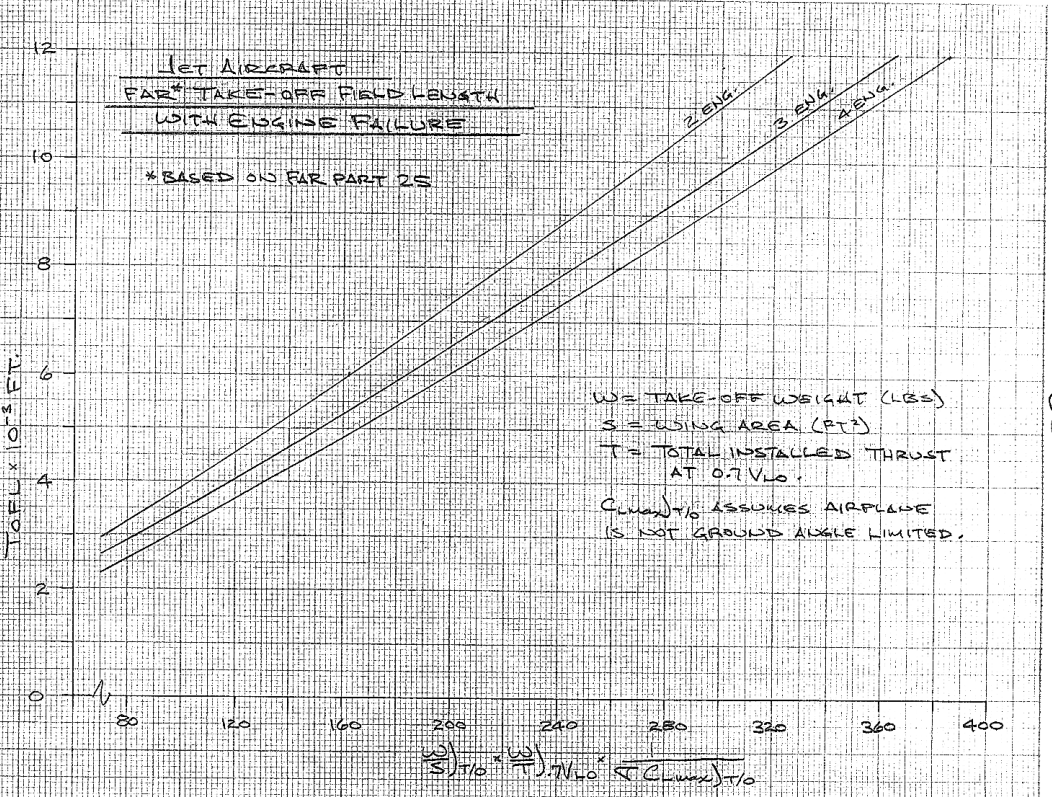 12
JET AIRCRAFT
FAR* TAKE-OFF FIELD LENGTH
WITH ENGINE FAILURE
2 ENG.
3 ENG.
4 ENG.
10
*BASED ON FAR PART 25
8
6
TOFL x 10⁻³ FT.
W = TAKE-OFF WEIGHT (LBS)
S = WING AREA (FT²)
T = TOTAL INSTALLED THRUST
AT 0.7 VLO.
4
CLmax)T/O ASSUMES AIRPLANE
IS NOT GROUND ANGLE LIMITED.
2
0
80 120 160 200 240 280 320 360 400
W/S)T/O × W/T).7VLO × σ CLmax)T/O